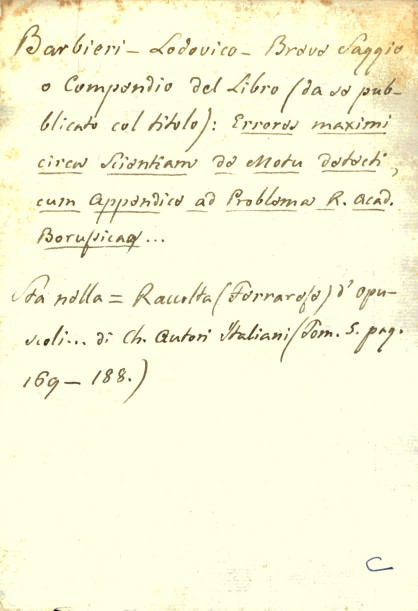 Barbieri - Lodovico - Breve Saggio
o Compendio del Libro (da se pub-
blicato col titolo): Errores maximi
circa Scientiam de Motu detecti,
cum Appendice ad Problema R. Acad.
Borussicae...
Sta nella = Raccolta (Ferrarese) d'Opu-
scoli... di Ch. Autori Italiani (Tom. 5. pag.
169 - 188.)
C